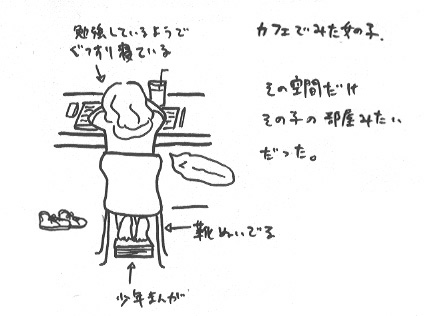 勉強しているようで
ぐっすり寝ている
カフェでみた女の子.
その空間だけ
その子の部屋みたい
だった。
靴ぬいでる
少年まんが